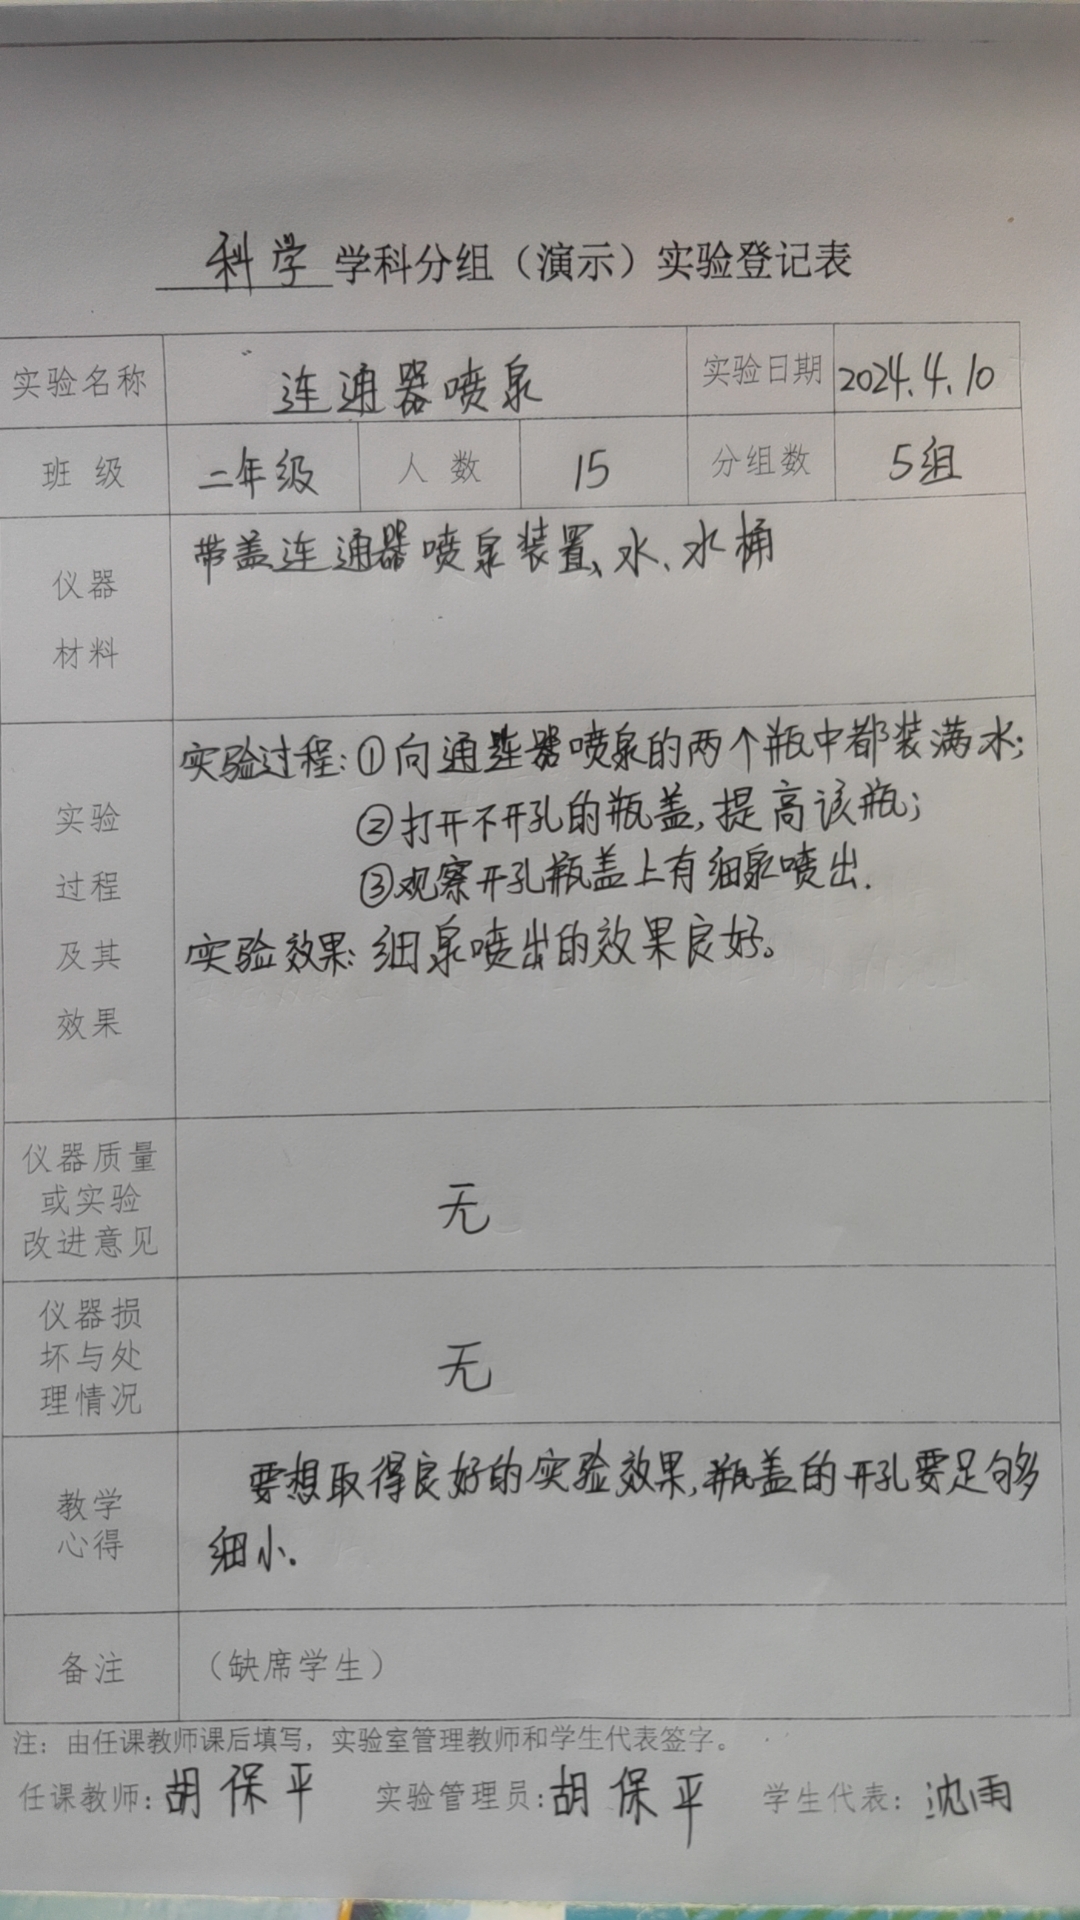 科学 学科分组（演示）实验登记表
实验名称 连通器喷泉 实验日期 2024.4.10
班 级 二年级 人 数 15 分组数 5组
仪器
材料
带盖连通器喷泉装置、水、水桶
实验
过程
及其
效果
实验过程:①向通连器喷泉的两个瓶中都装满水;
②打开不开孔的瓶盖,提高该瓶;
③观察开孔瓶盖上有细泉喷出.
实验效果:细泉喷出的效果良好。
仪器质量
或实验
改进意见
无
仪器损
坏与处
理情况
无
教学
心得
要想取得良好的实验效果,瓶盖的开孔要足够
细小.
备注 （缺席学生）
注：由任课教师课后填写，实验室管理教师和学生代表签字。
任课教师:胡保平 实验管理员:胡保平 学生代表：沈雨